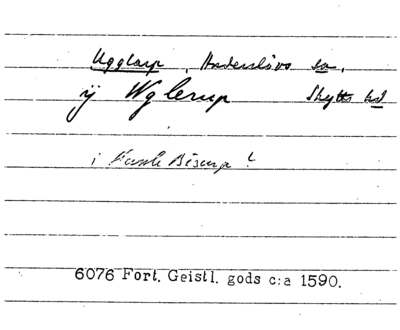 Ugglarp, Anderslövs sn.
ij Wglerup Skytts hd
i
6076 Fort. Geistl. gods c:a 1590.